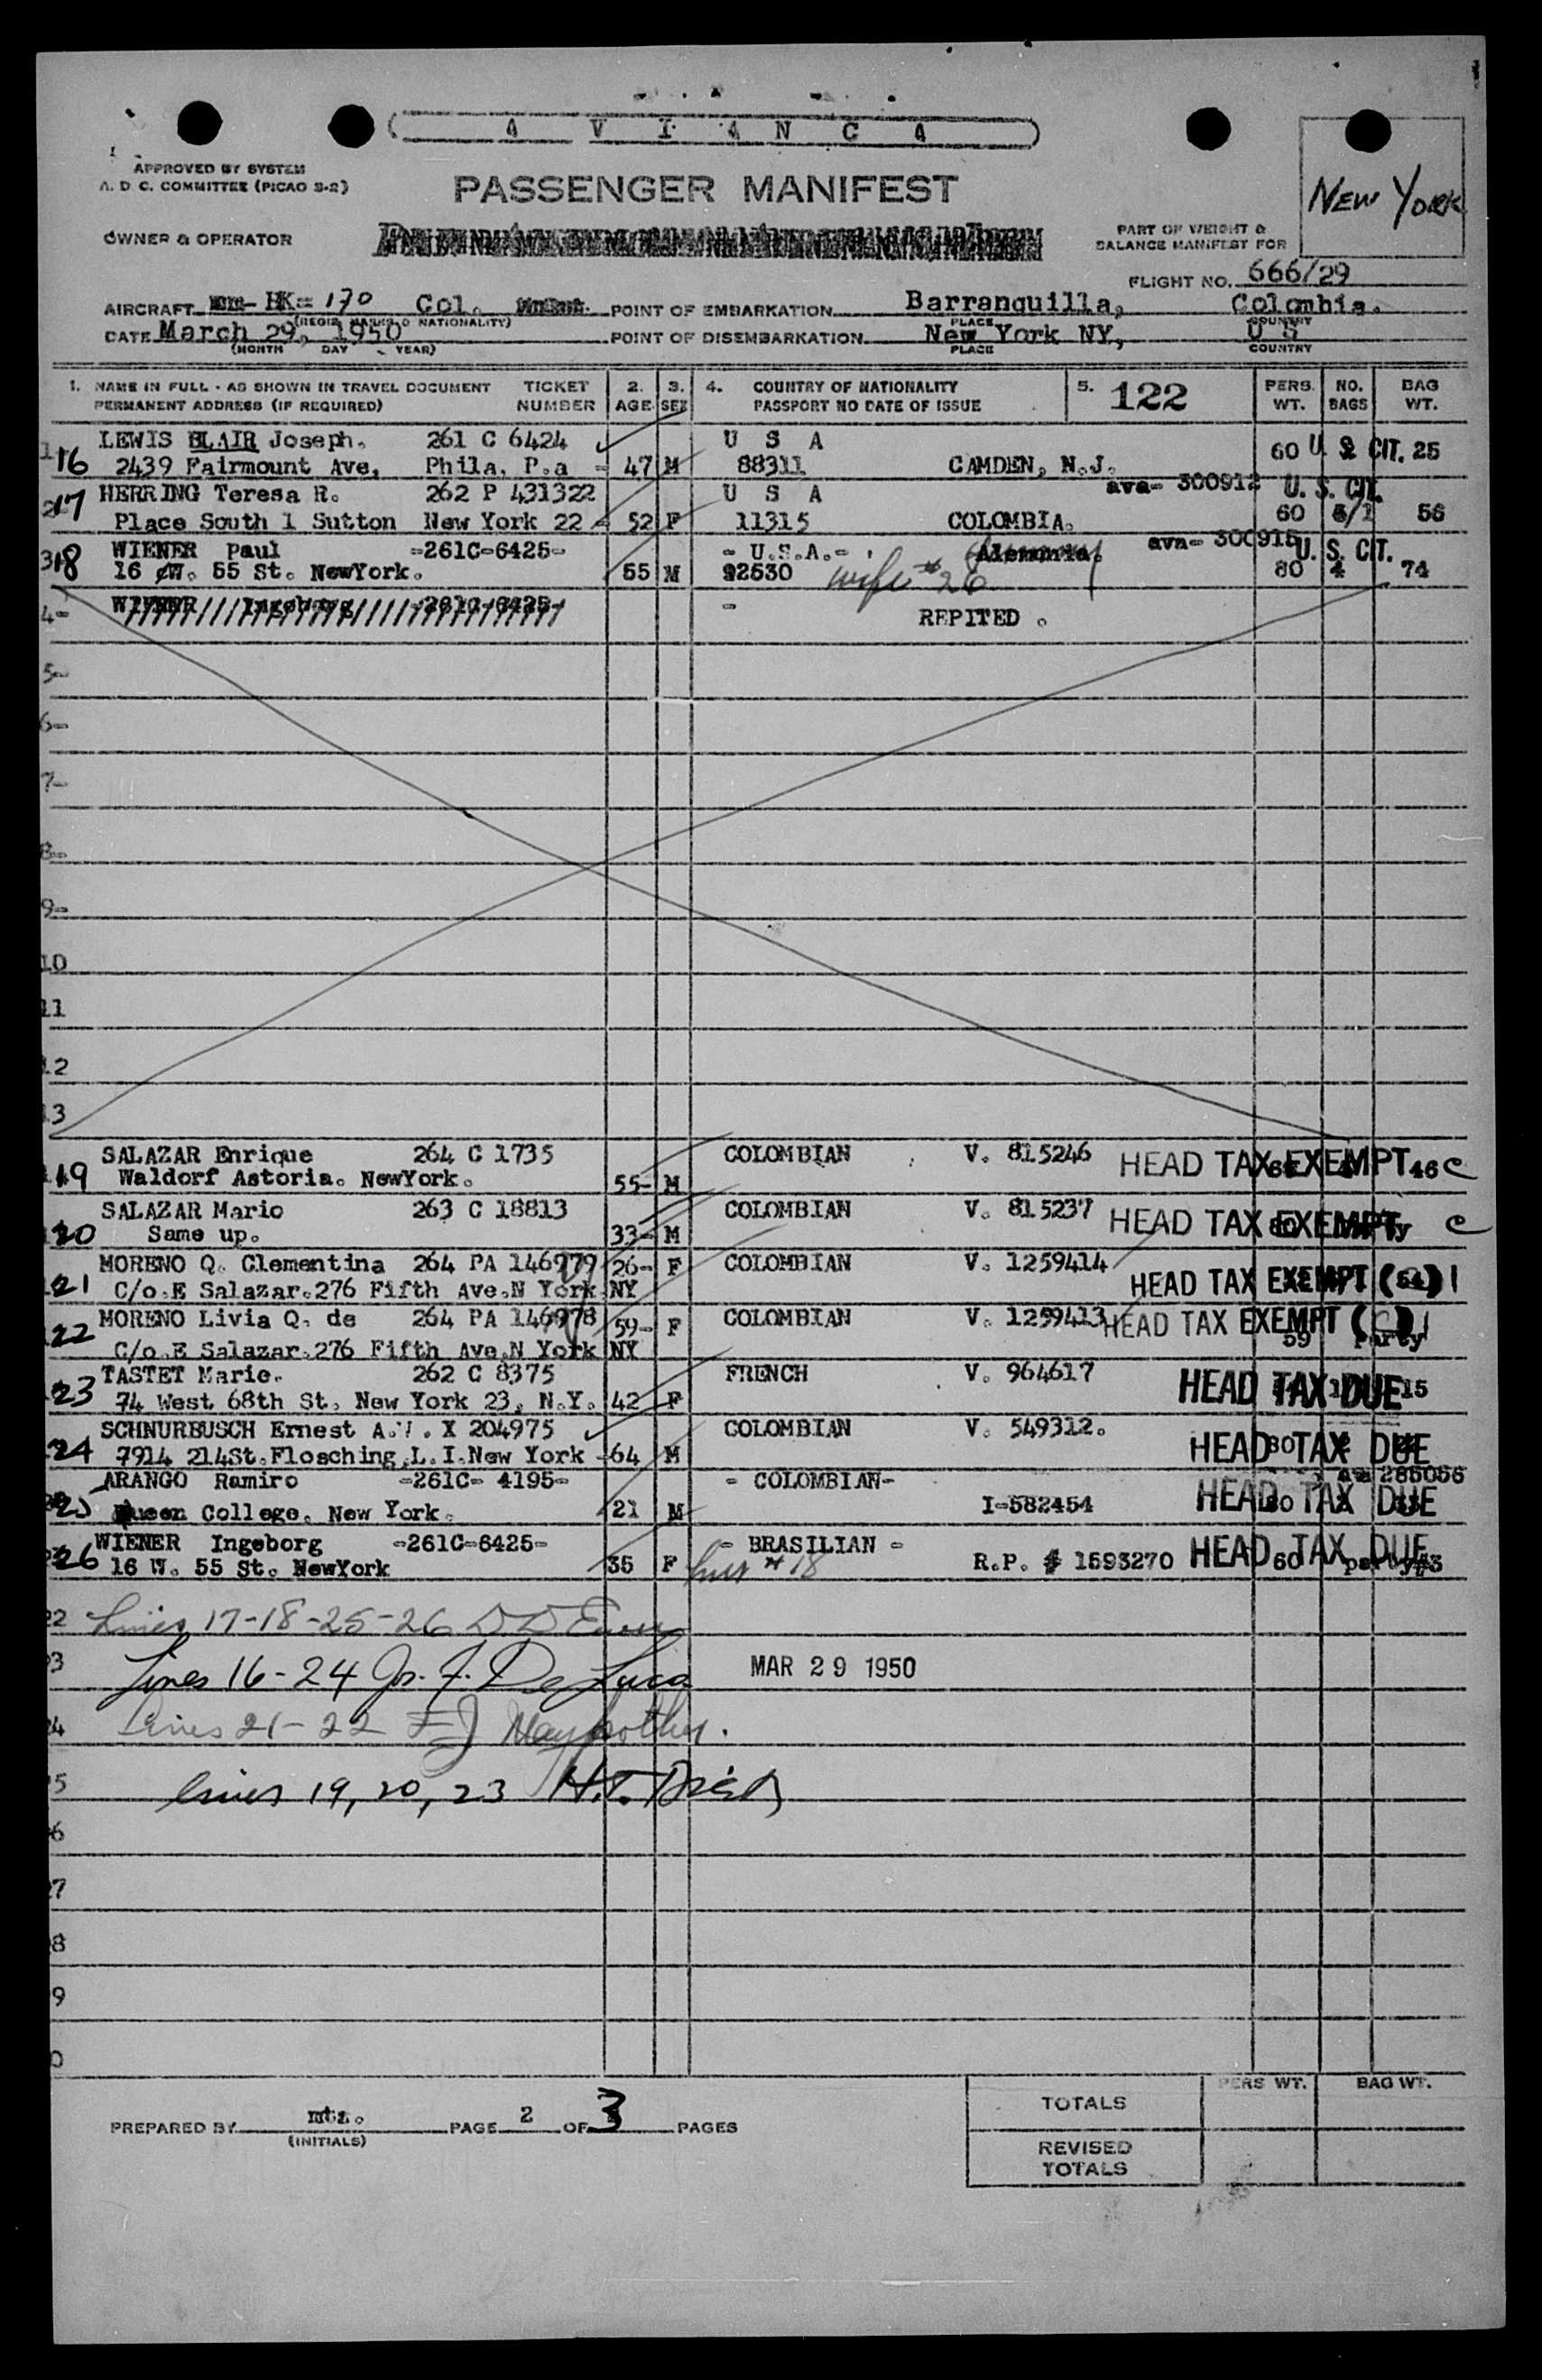 A V I A N C A
APPROVED BY SYSTEM
A. D C. COMMITTEE (PICAO S-2)
PASSENGER MANIFEST
NEW YORK
OWNER & OPERATOR
PART OF WEIGHT &
BALANCE MANIFEST FOR
FLIGHT NO. 666/29
AIRCRAFT HK= 170 Col. POINT OF EMBARKATION Barranquilla, Colombia.
(REGIS. MARKS & NATIONALITY) PLACE COUNTRY
DATE March 29, 1950 POINT OF DISEMBARKATION New York NY, U S
(MONTH DAY YEAR) PLACE COUNTRY
1. NAME IN FULL - AS SHOWN IN TRAVEL DOCUMENT TICKET 2. 3. 4. COUNTRY OF NATIONALITY 5. 122 PERS. NO. BAG
PERMANENT ADDRESS (IF REQUIRED) NUMBER AGE SEX PASSPORT NO DATE OF ISSUE WT. BAGS WT.
LEWIS BLAIR Joseph. 261 C 6424 U S A
16 2439 Fairmount Ave, Phila, P.a - 47 M 88311 CAMDEN, N.J. 60 U. S. CIT. 25
HERRING Teresa R. 262 P 431322 U S A ava- 300912 U. S. CIT.
17 Place South 1 Sutton New York 22 - 52 F 11315 COLOMBIA. 60 /1 56
WIENER Paul -261C-6425- - U.S.A.- Alemania. Germany ava- 300915 U. S. CIT.
18 16 W. 55 St. NewYork. 55 M 92530 wife # 26 80 4 74
4- WIENER Ingeborg -261C-6425- - REPITED .
5-
6-
7-
8-
9-
10
11
12
13
SALAZAR Enrique 264 C 1735 COLOMBIAN V. 815246 HEAD TAX EXEMPT 46 C
19 Waldorf Astoria. NewYork. 55- M
SALAZAR Mario 263 C 18813 COLOMBIAN V. 815237 HEAD TAX EXEMPT C
20 Same up. 33- M
MORENO Q. Clementina 264 PA 146979 26- F COLOMBIAN V. 1259414
21 C/o.E Salazar.276 Fifth Ave.N York NY HEAD TAX EXEMPT (54) 1
MORENO Livia Q. de 264 PA 146978 59- F COLOMBIAN V. 1259413 HEAD TAX EXEMPT
22 C/o.E Salazar.276 Fifth Ave.N York NY 59 Party
TASTET Marie. 262 C 8375 FRENCH V. 964617 HEAD TAX DUE 15
23 74 West 68th St. New York 23, N.Y. 42 F
SCHNURBUSCH Ernest X 204975 COLOMBIAN V. 549312.
24 7914 214St.Flosching,L.I.New York - 64 M HEAD TAX DUE
ARANGO Ramiro -261C- 4195- - COLOMBIAN- 285056
25 Queen College. New York. 21 M I-582454 HEAD TAX DUE
WIENER Ingeborg -261C-6425- - BRASILIAN -
26 16 W. 55 St. NewYork 35 F # 18 R.P. # 1593270 HEAD TAX DUE
22 Lines 17-18-25-26
23 Lines 16-24 De Luca MAR 29 1950
24 Lines 21-22
25 lines 19, 20, 23 H.T.
26
27
28
29
30
PREPARED BY mtz. PAGE 2 OF 3 PAGES
(INITIALS)
PERS WT. BAG WT.
TOTALS
REVISED
TOTALS